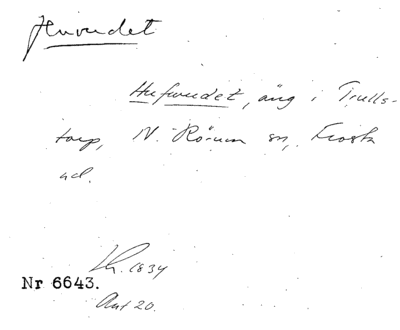 Hufvudet, äng i Trulls-
torp, N. Rörum sn, Frosta
ad.
Nr 6643.
1834
Akt 20.